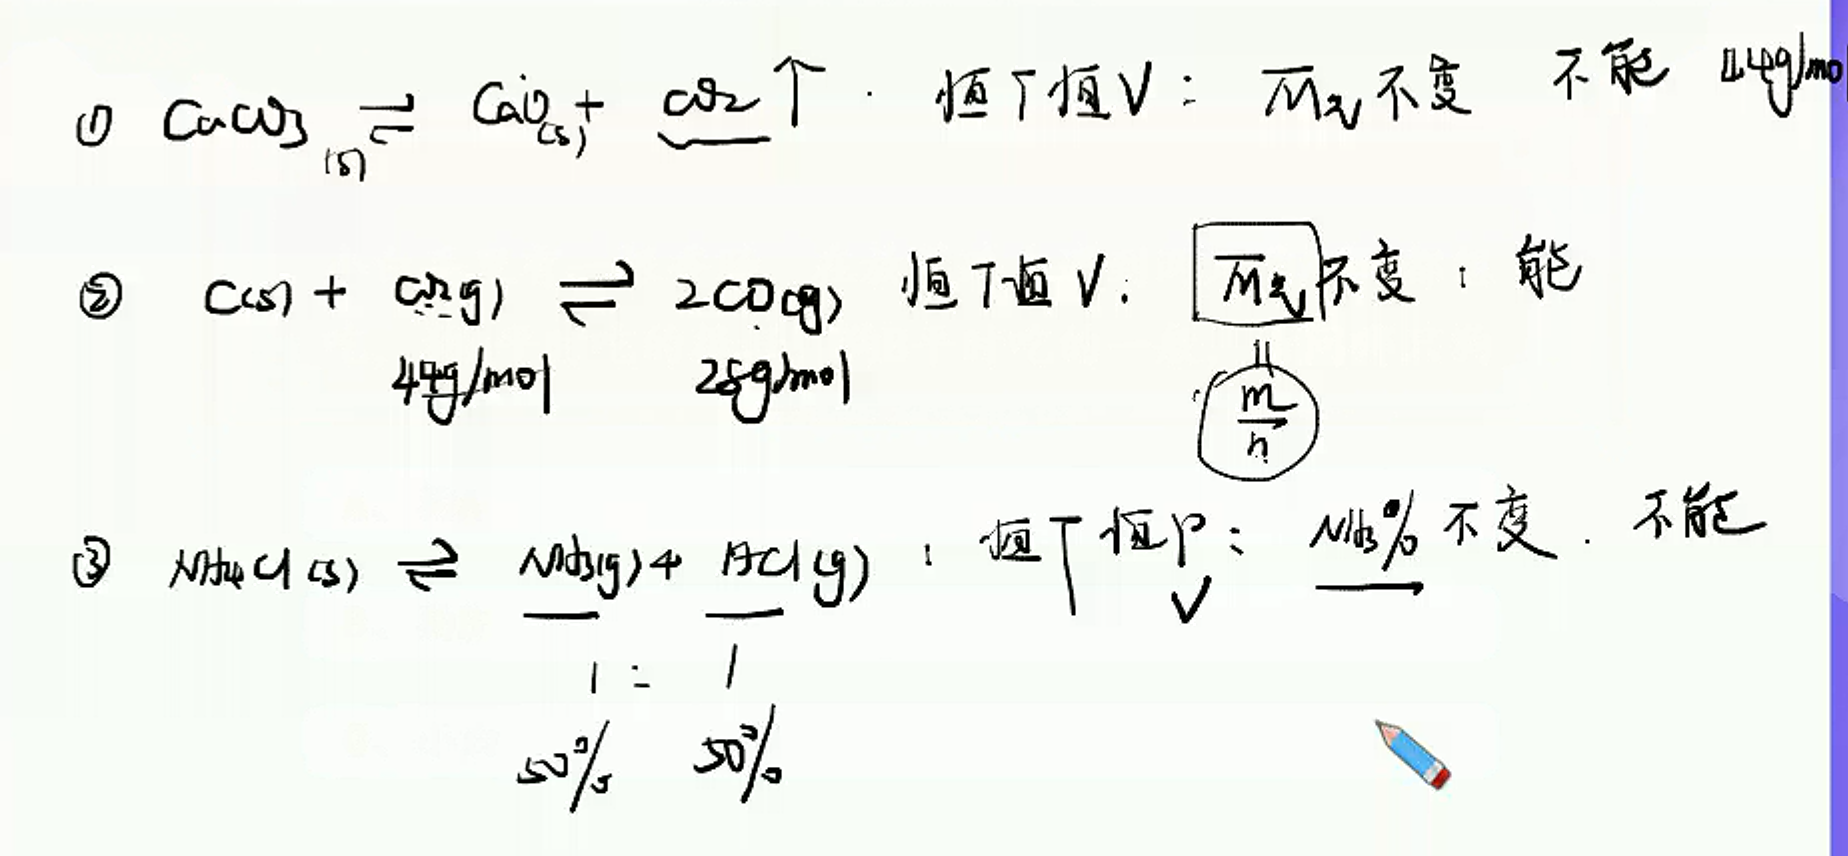 ① CaCO3(s) ⇌ CaO(s) + CO2↑ . 恒T恒V: M̅气不变 不能 44g/mol
② C(s) + CO2(g) ⇌ 2CO(g) 恒T恒V. M̅气不变: 能
44g/mol 28g/mol = m/n
③ NH4Cl(s) ⇌ NH3(g) + HCl(g) : 恒T恒P: NH3% 不变. 不能
1 : 1
50% 50%